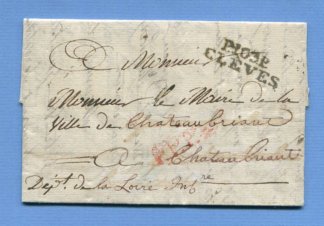 P103P
CLEVES
A Monsieur
Monsieur le Maire de la
Ville de Chateaubriant
A Chateaubriant
Dépt. de la Loire Infre